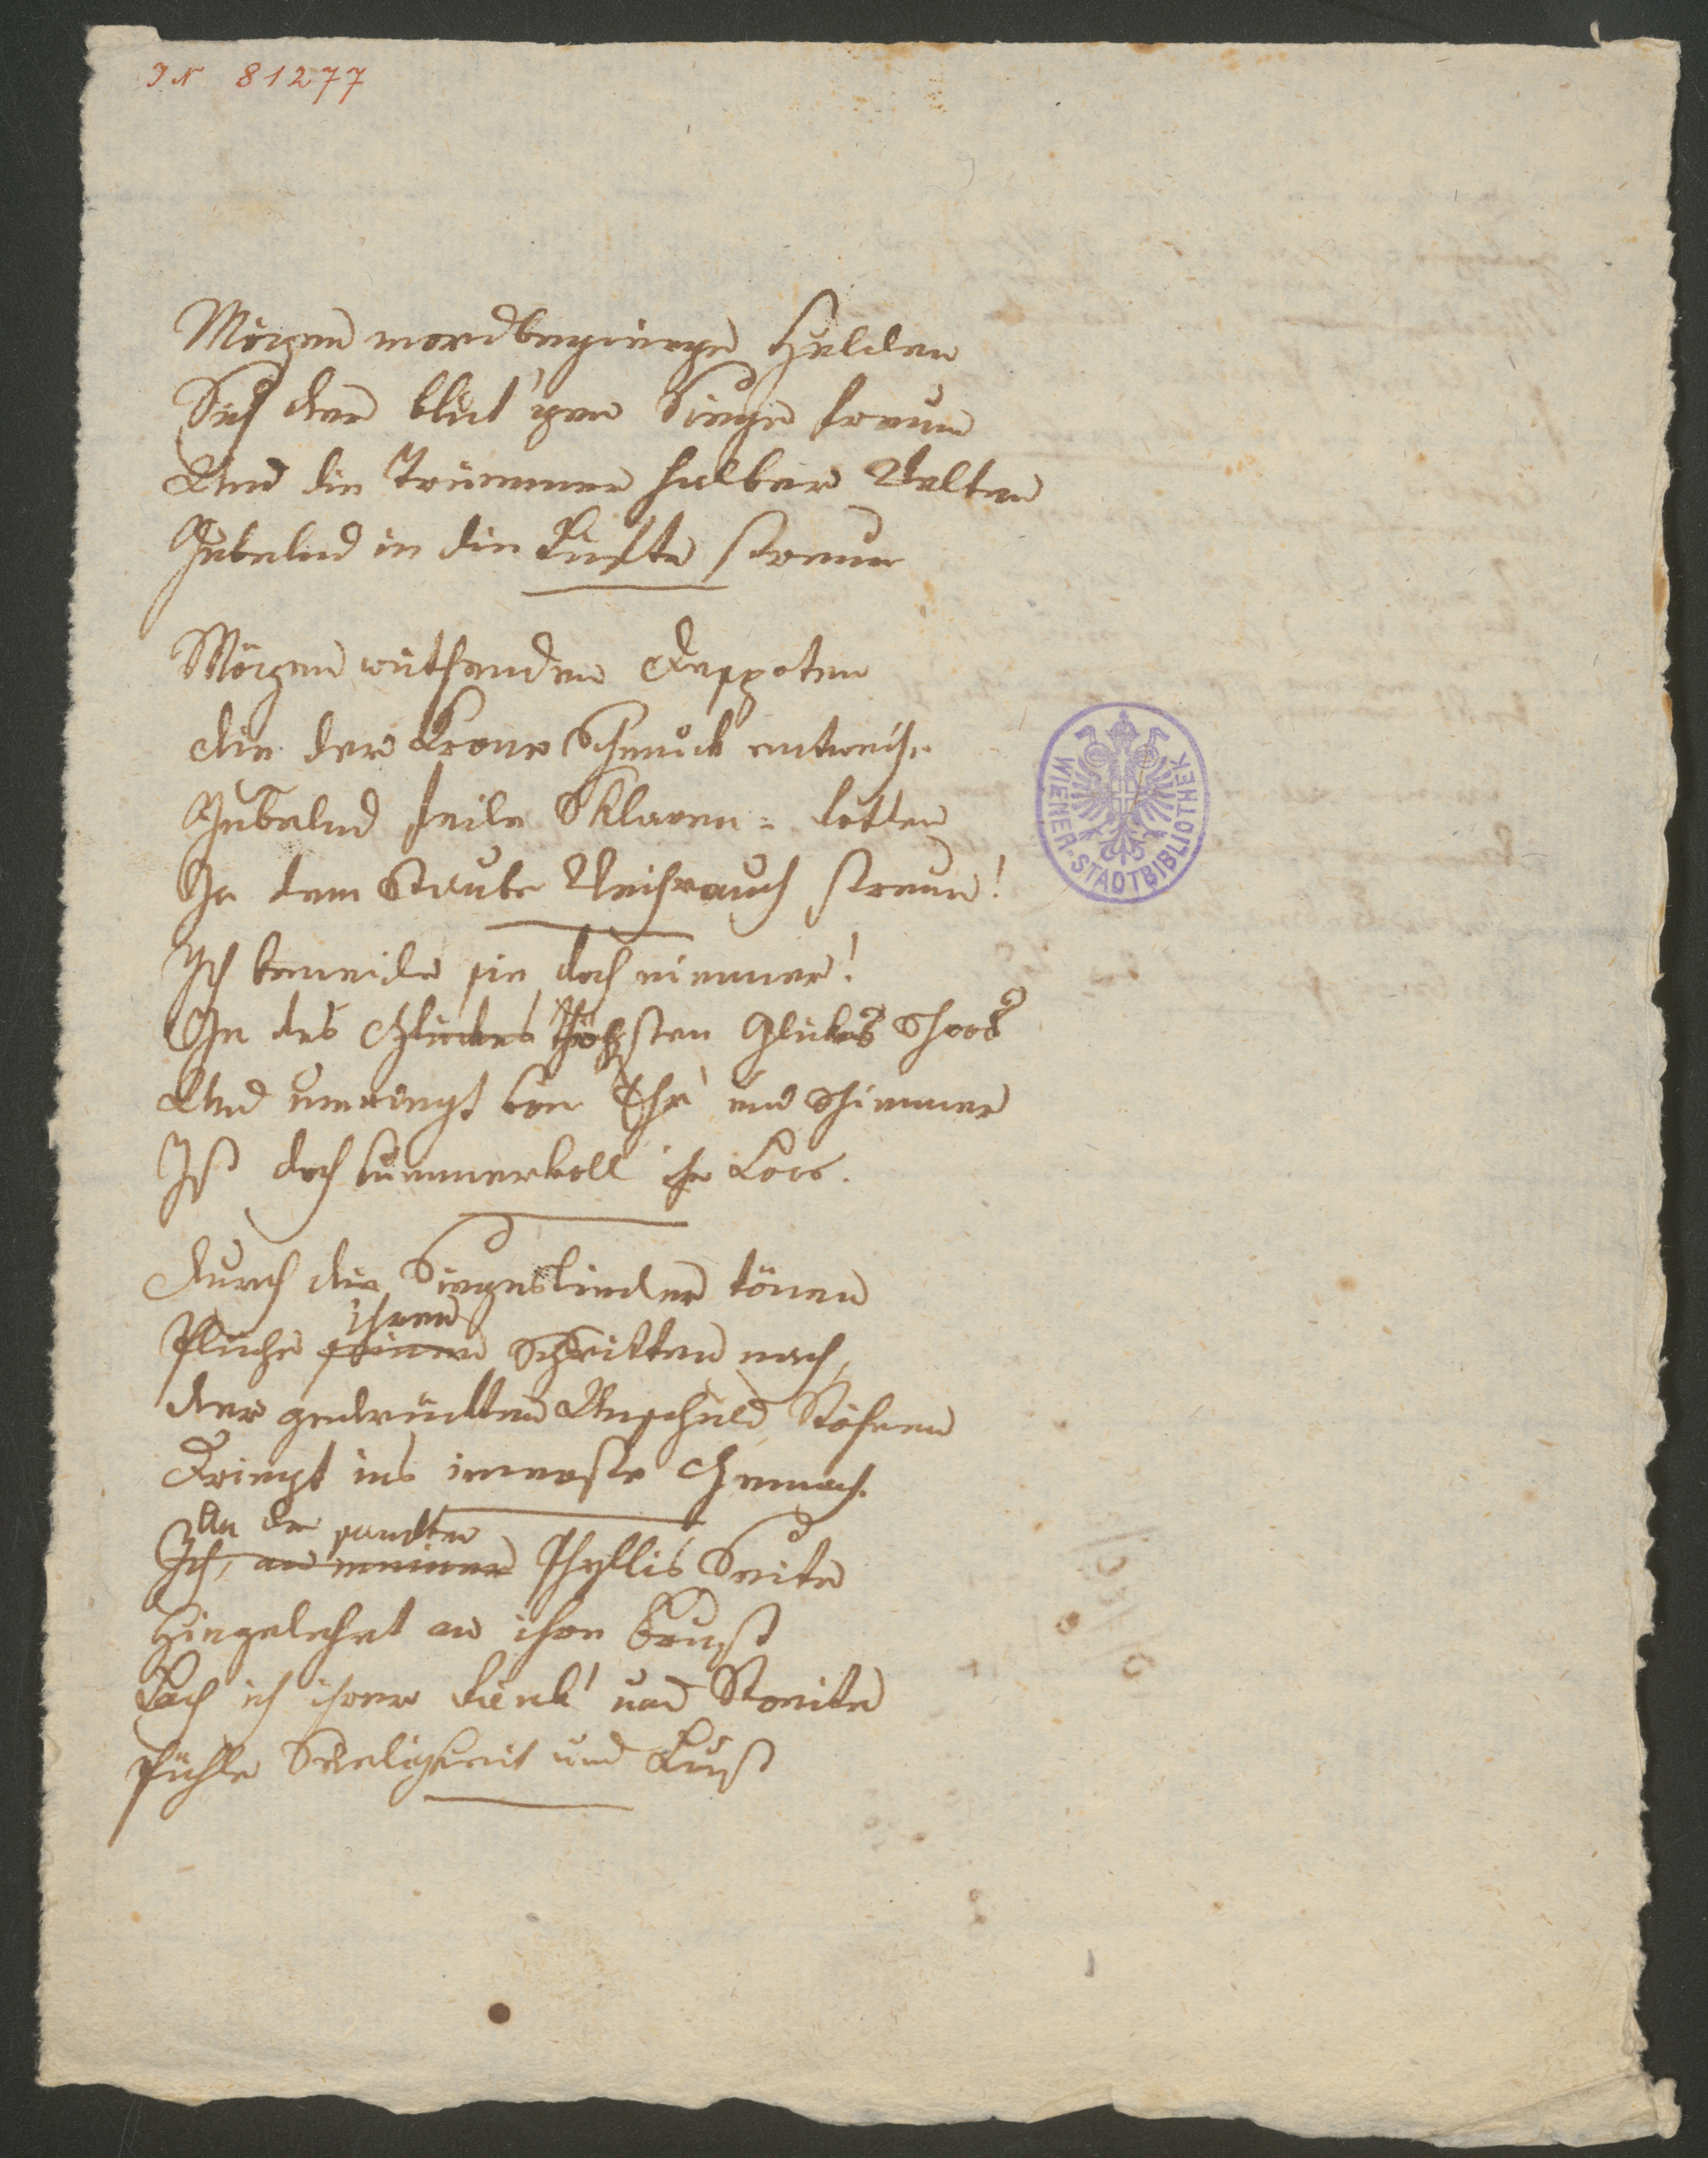 IN 81277
Mögen mordbegierge Helden
Sich der blut'gen Siege freuen
Und die Trümmer halber Welten
Jubelnd in die Lüfte streuen
Mögen wüthenden Despoten
die der Krone Schmuck entweihn
Jubelnd feile Sklaven-
In dem Staube Weihrauch streuen!
Ich beneide sie doch nimmer!
In des Glückes höchsten Glückes Schoos
Und umringt von Ehr' und Schimmer
Ist doch kummervoll ihr Loos.
durch die Siegeslieder tönen
ihren
Flüche seinen Schritten nach,
der gedrückten Unschuld Stöhnen
Dringt ins innerste Gemach.
An der sanften
Ich, an meiner Phyllis Seite
Hingelehnt an ihre Brust
Lach ich ihrer Zänk' und Streite
Fühle Seeligkeit und Lust
WIENER-STADTBIBLIOTHEK